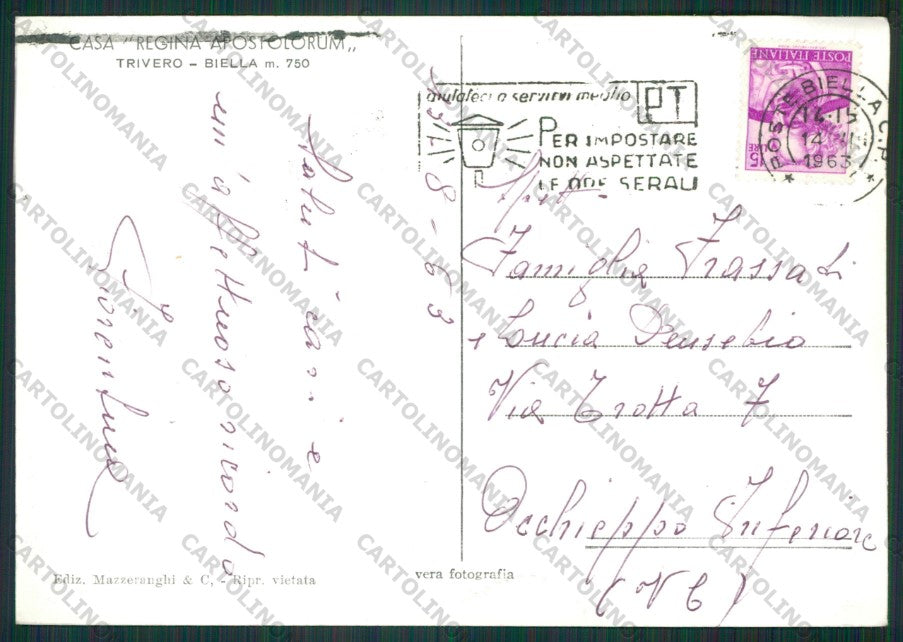 CASA "REGINA APOSTOLORUM"
TRIVERO - BIELLA m. 750
Saluti cari e
un affettuoso ricordo
Fiorentina
13-8-63
aiutateci a servirvi meglio
PT
PER IMPOSTARE
NON ASPETTATE
LE ORE SERALI
POSTE ITALIANE
LIRE 15
POSTE BIELLA C.P.
16-15
14
1963
Spett.
Famiglia Frassati
e Lucia Deusebio
Via Trotta 7
Occhieppo Inferiore
(VC)
Ediz. Mazzeranghi & C, - Ripr. vietata
vera fotografia
CARTOLINOMANIA